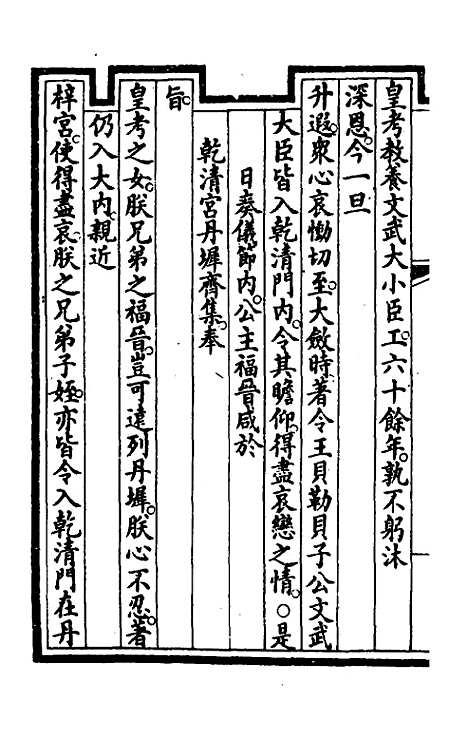 皇考教養文武大小臣工。六十餘年。孰不躬沐
深恩。今一旦
升遐。衆心哀慟切至。大斂時著令王貝勒貝子公文武
大臣皆入乾清門內。令其瞻仰。得盡哀戀之情。○是
日奏儀節內。公主福晉咸於
乾清宮丹墀齊集。奉
旨。
皇考之女。朕兄弟之福晉。豈可遠列丹墀。朕心不忍。著
仍入大內。親近
梓宮。使得盡哀。朕之兄弟子姪。亦皆令入乾清門在丹